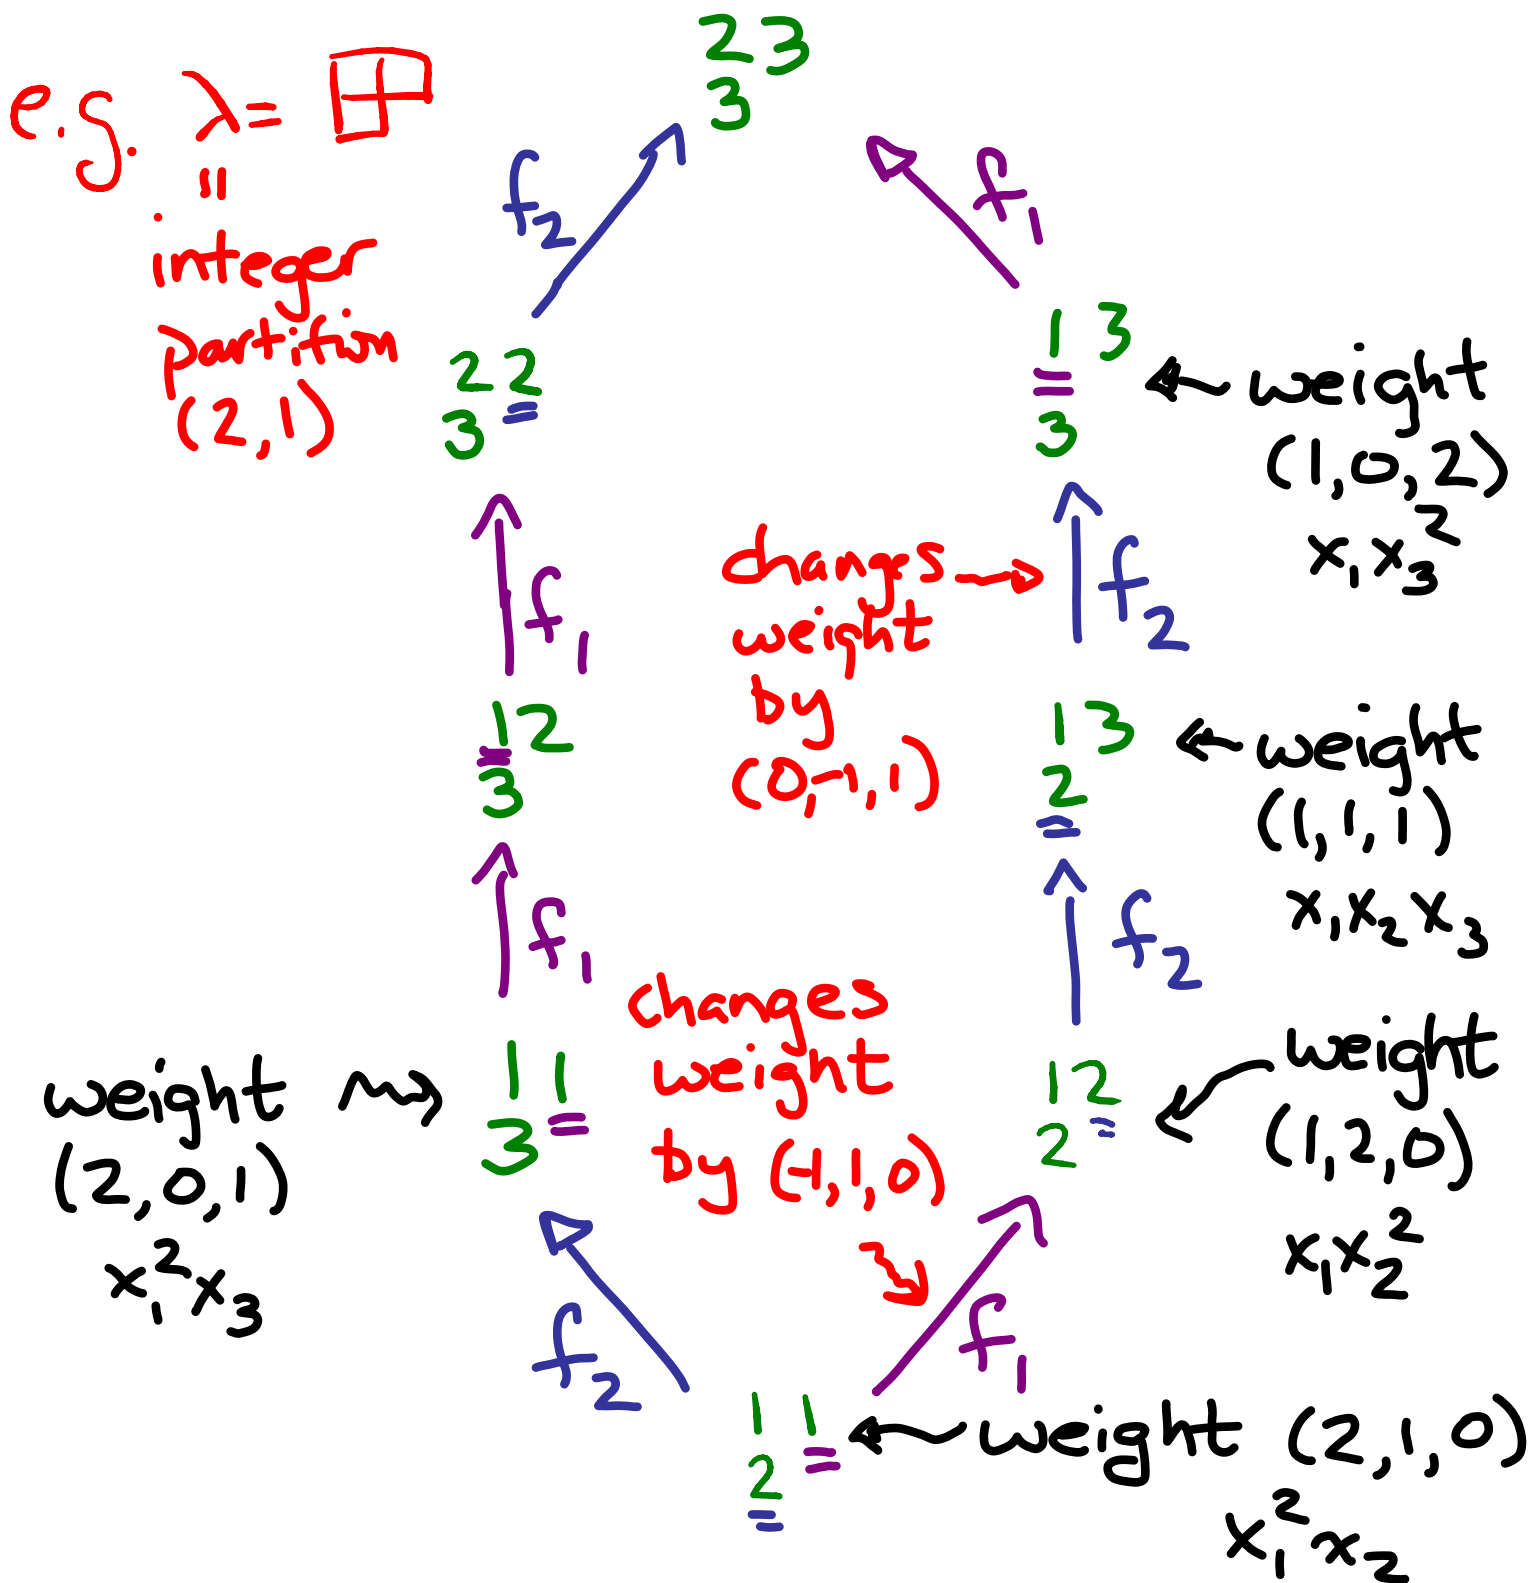 e.g. λ =
"
integer
partition
(2,1)
2 3
3
f₂
f₁
2 2
3
1 3
3
← weight
(1,0,2)
x₁x₃²
f₁
changes →
weight
by
(0,-1,1)
f₂
1 2
3
1 3
2
← weight
(1,1,1)
x₁x₂x₃
f₁
f₂
weight →
(2,0,1)
x₁²x₃
1 1
3
changes
weight
by (-1,1,0)
1 2
2
weight
(1,2,0)
x₁x₂²
f₂
f₁
1 1
2
← weight (2,1,0)
x₁²x₂